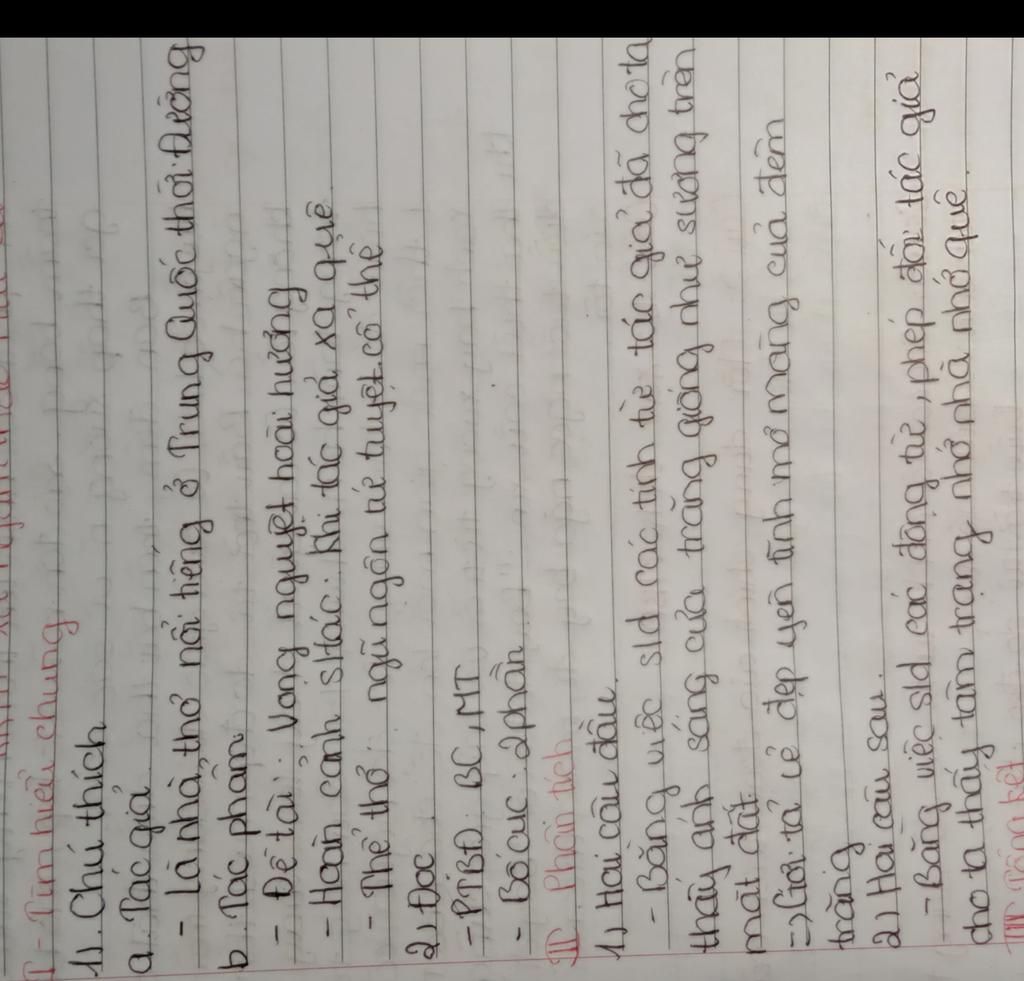 I - Tìm hiểu chung
1). Chú thích
a. Tác giả
- Là nhà thơ nổi tiếng ở Trung Quốc thời Đường
b. Tác phẩm
- Đề tài: Vọng nguyệt hoài hương
- Hoàn cảnh s/tác: Khi tác giả xa quê
- Thể thơ: ngũ ngôn tứ tuyệt cổ thể
2) Đọc
- PTBĐ: BC, MT
- Bố cục: 2 phần
II Phân tích
1) Hai câu đầu.
- Bằng việc s/d các tính từ tác giả đã cho ta
thấy ánh sáng của trăng giống như sương trên
mặt đất
=> Gợi tả vẻ đẹp yên tĩnh mơ màng của đêm
trăng
2) Hai câu sau.
- Bằng việc s/d các động từ, phép đối tác giả
cho ta thấy tâm trạng nhớ nhà nhớ quê.
III Tổng kết